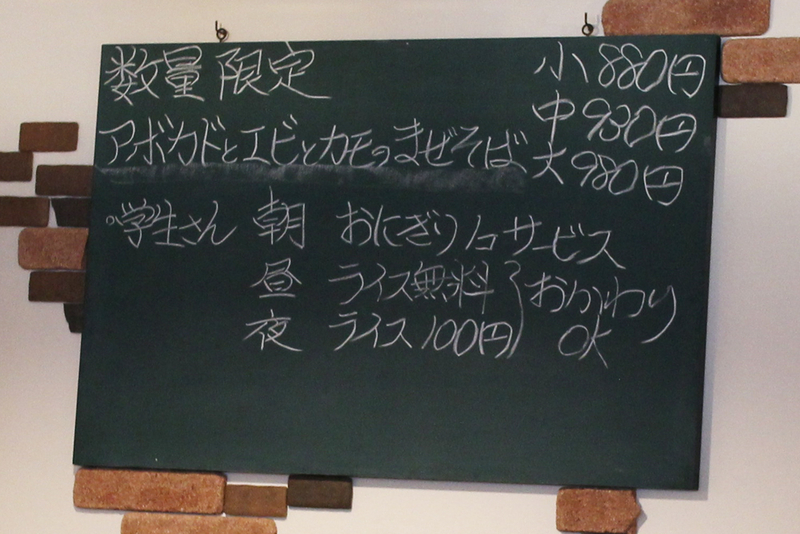 数量限定 小 880円
中 980円
アボカドとエビとカモのまぜそば 大 980円
学生さん 朝 おにぎり1コサービス
昼 ライス無料 おかわり
夜 ライス100円 OK